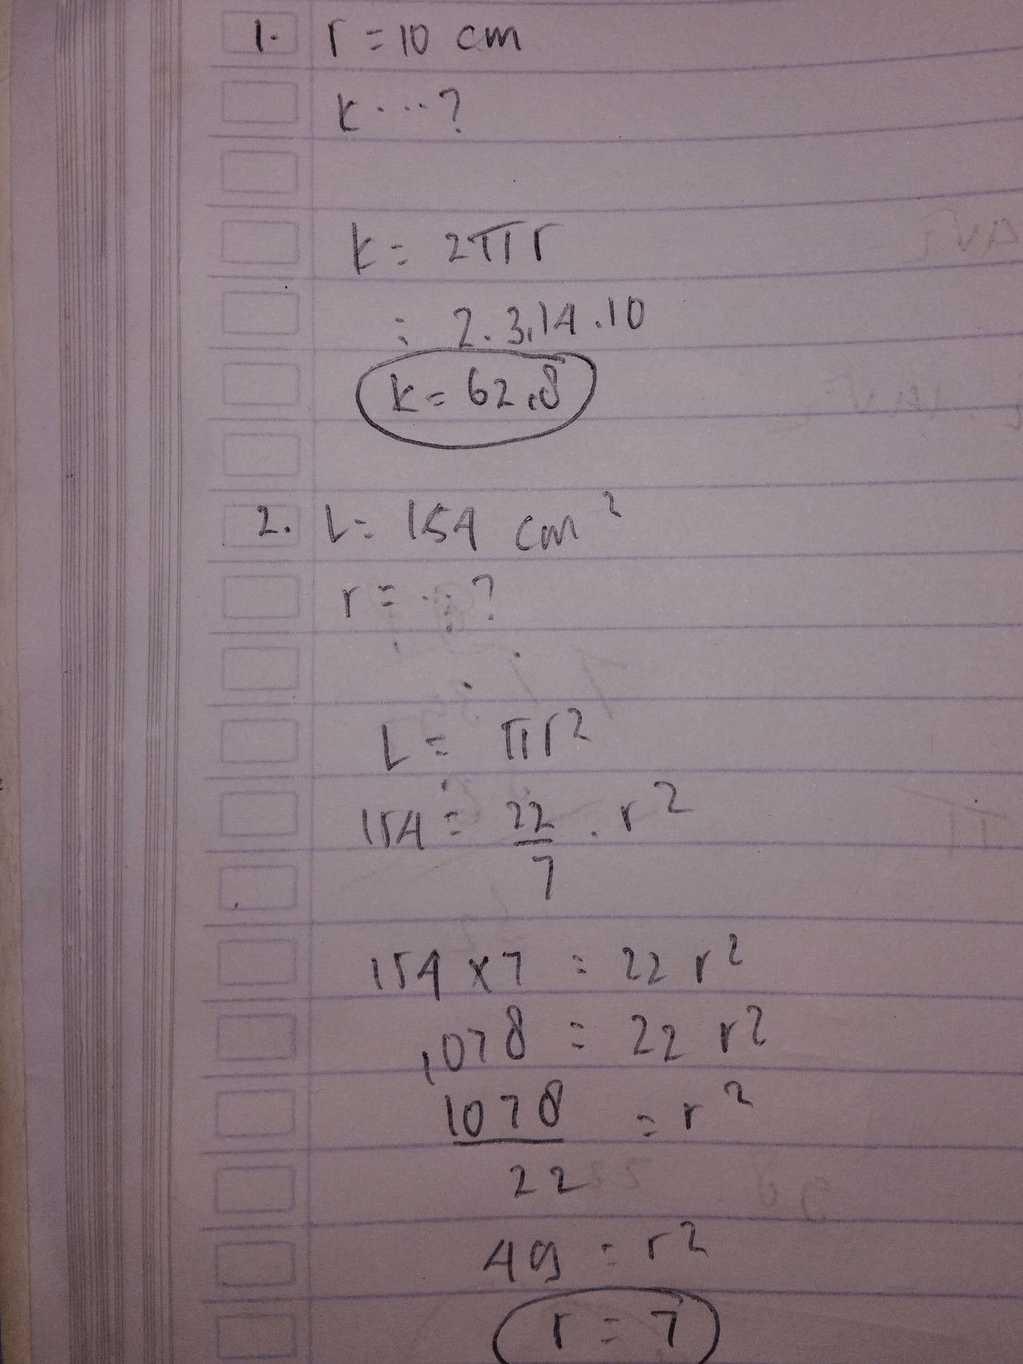 1. r = 10 cm
k ....?
k = 2πr
= 2.3,14.10
k = 62,8
2. L = 154 cm²
r = ...?
L = πr²
154 = 22/7 . r²
154 x 7 = 22 r²
1078 = 22 r²
1078/22 = r²
49 = r²
r = 7